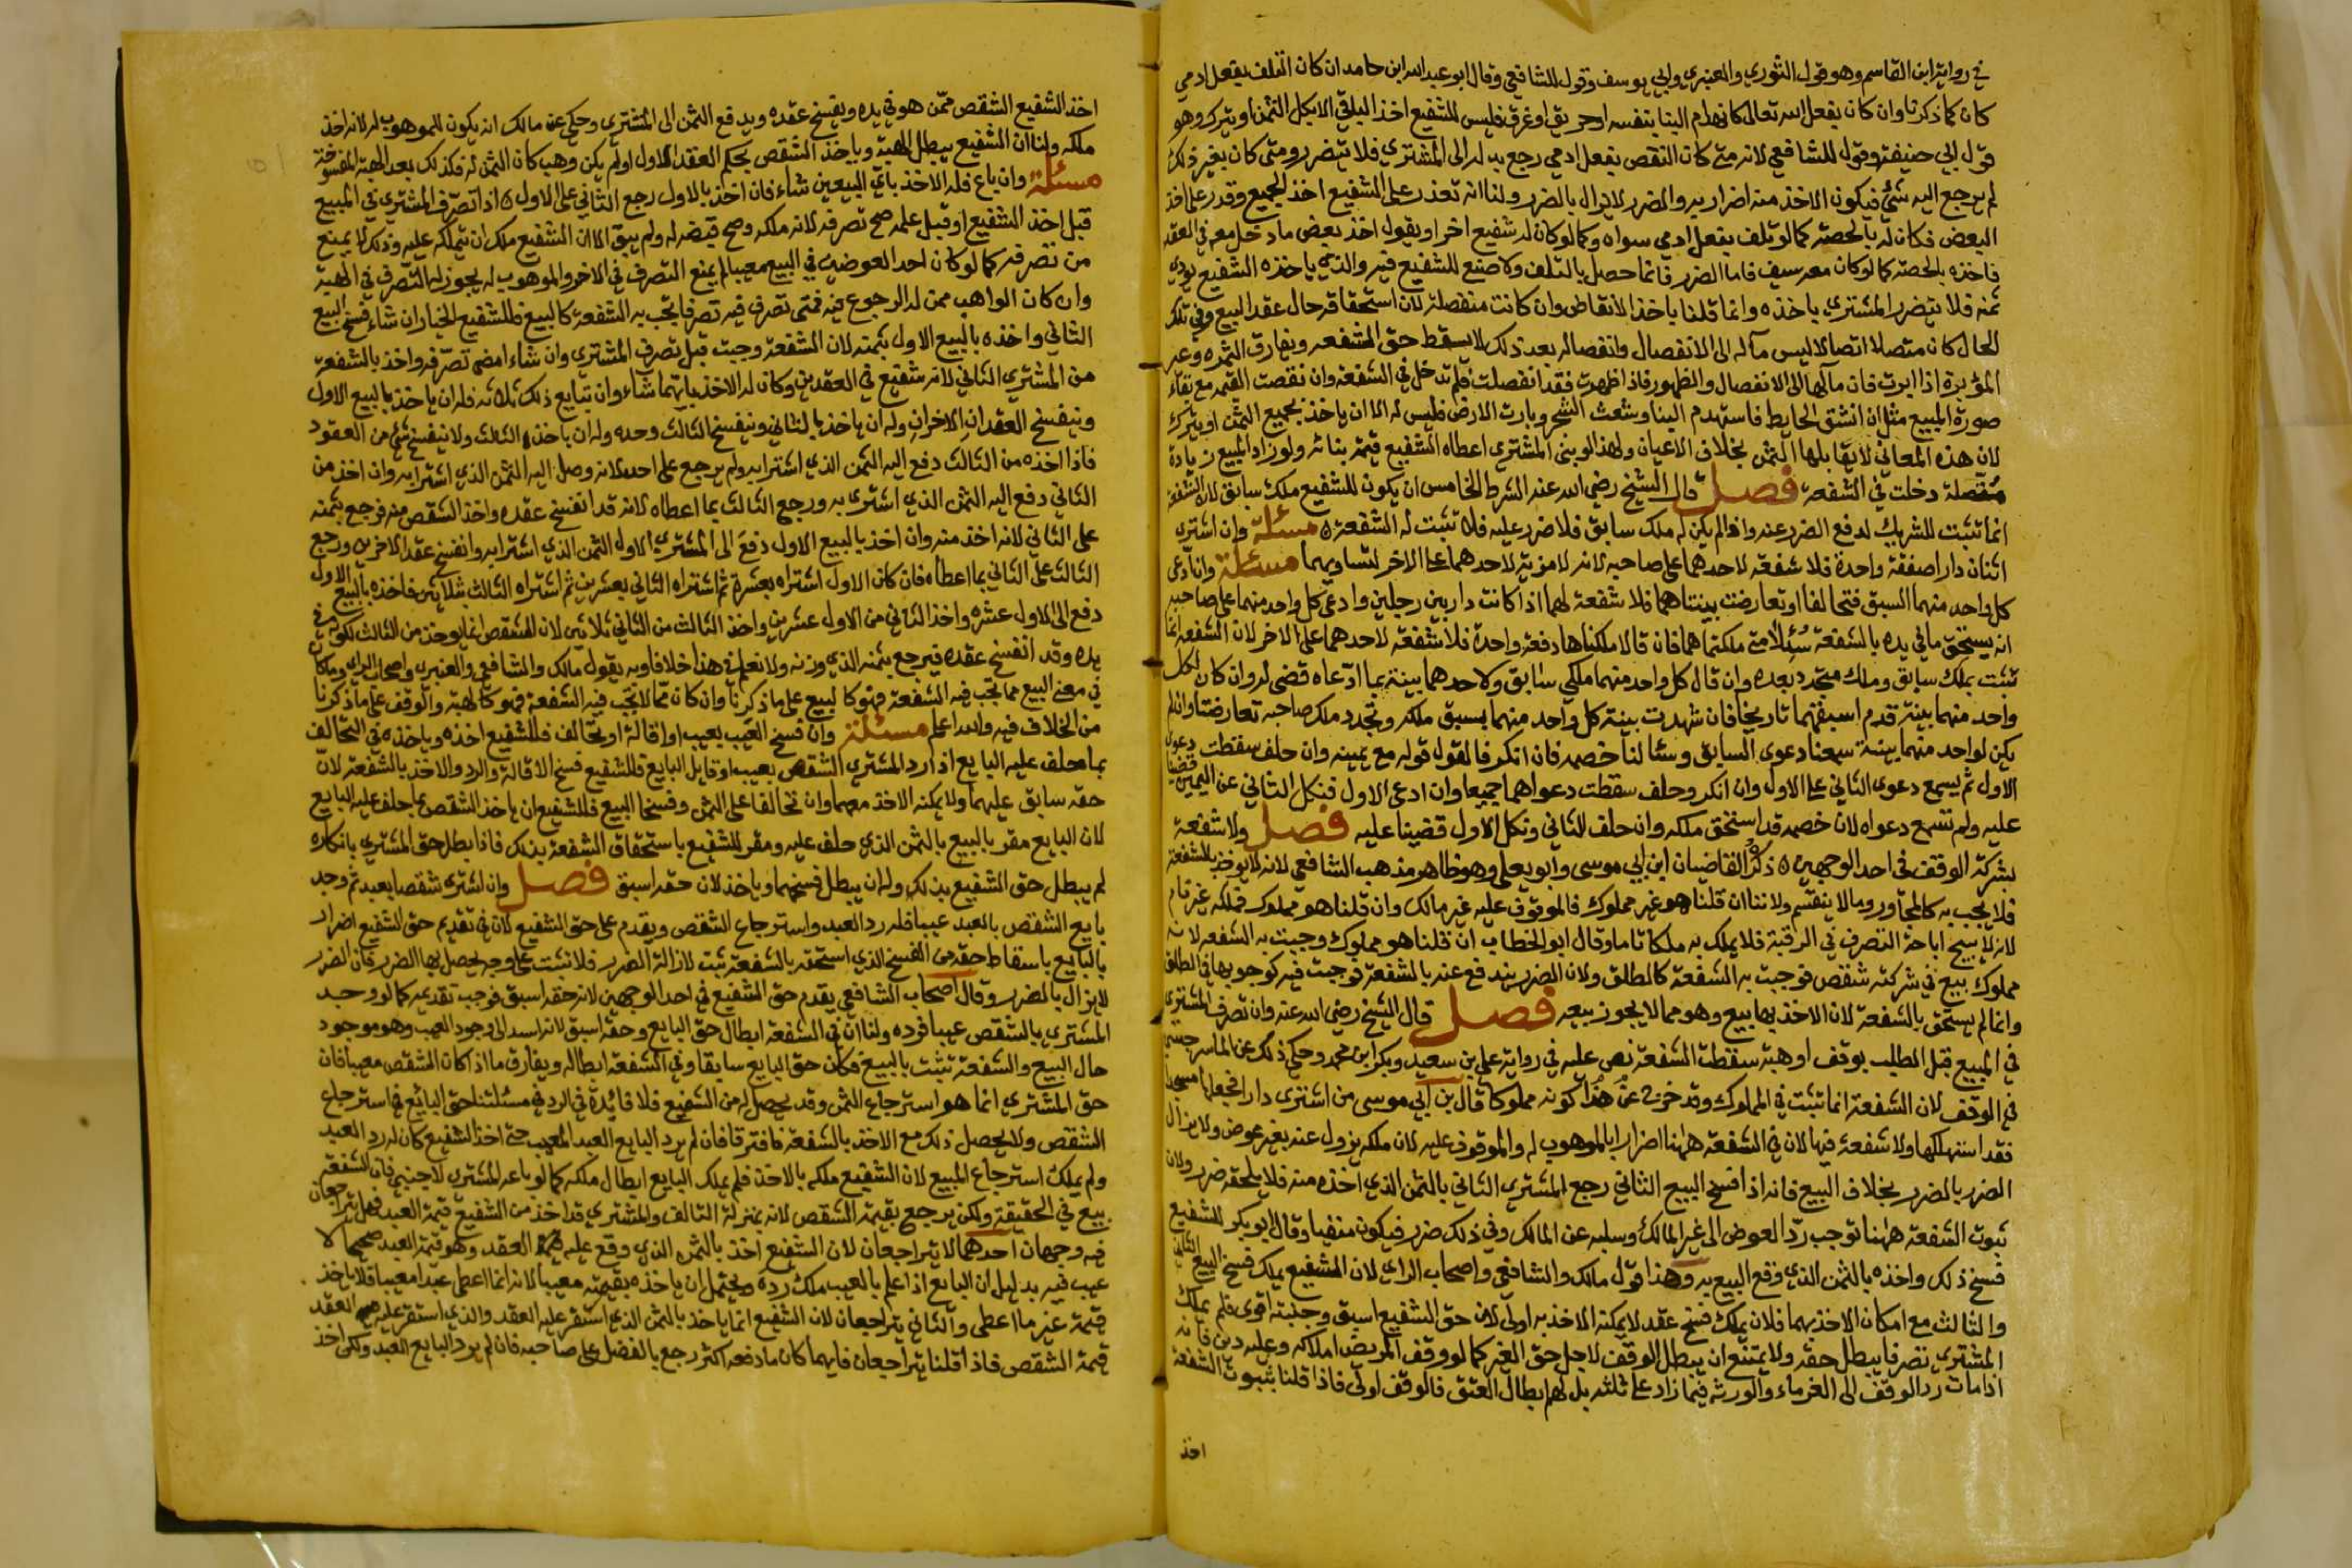 في رواية ابن القاسم وهو قول الثوري والعنبري وابي يوسف وقول للشافعي وقال ابو عبد الله ابن حامد ان كان التلف بفعل ادمي
كان كما ذكرنا وان كان بفعل الله تعالى كانهدام البنا بنفسه او حريق او غرق فليس للشفيع اخذ الباقي الا بكل الثمن او يترك وهو
قول ابي حنيفة وقول للشافعي لانه متى كان النقص بفعل ادمي رجع بدله الى المشتري فلا يتضرر ومتى كان بغير ذلك
لم يرجع اليه شئ فيكون الاخذ منه اضرارا به والضرر لا يزال بالضرر ولنا انه تعذر على الشفيع اخذ الجميع وقدر على اخذ
البعض فكان له بالحصة كما لو تلف بفعل ادمي سواه وكما لو كان له شفيع اخر او يقول اخذ بعض ما دخل معه في العقد
فاخذه بالحصة كما لو كان معه سيف فاما الضرر فانما حصل بالتلف ولا صنع للشفيع فيه والذي ياخذه الشفيع يؤدي
ثمنه فلا يتضرر المشتري باخذه وانما قلنا ياخذ الانقاض وان كانت منفصلة لان استحقاقه حال عقد البيع وفي تلك
الحال كان متصلا اتصالا ليس مآله الى الانفصال وانفصاله بعد ذلك لا يسقط حق الشفعه ويفارق الثمره وغير
المؤبرة اذا ابرت فان مآلها الى الانفصال والظهور فاذا ظهرت فقد انفصلت فلم تدخل في الشفعة وان نقصت القيمه مع بقاء
صورة المبيع مثل ان انشق الحايط فاستهدم البنا وشعث الشجر وبارت الارض فليس له الا ان ياخذ بجميع الثمن او يترك
لان هذه المعاني لا يقابلها الثمن بخلاف الاعيان ولهذا لو بنى المشتري اعطاه الشفيع قيمة بنائه ولو زاد المبيع زيادة
متصلة دخلت في الشفعة فصل قال الشيخ رضي الله عنه الشرط الخامس ان يكون للشفيع ملك سابق لان الشفعة
انما تثبت للشريك لدفع الضرر عنه واذا لم يكن له ملك سابق فلا ضرر عليه فلا تثبت له الشفعة ه مسئلة وان اشترى
اثنان دارا صفقة واحدة فلا شفعة لاحدهما على صاحبه لانه لا مزية لاحدهما على الاخر لتساويهما مسئلة وان ادعى
كل واحد منهما السبق فتحالفا او تعارضت بينتاهما فلا شفعة لهما اذا كانت دار بين رجلين وادعى كل واحد منهما على صاحبه
انه يستحق ما في يده بالشفعة سُئلا متى ملكتماها فان قالا ملكناها دفعة واحدة فلا شفعة لاحدهما على الاخر لان الشفعه انما
تثبت بملك سابق وملك متجدد بعده وان قال كل واحد منهما ملكي سابق ولاحدهما بينة بما ادعاه قضي له وان كان لكل
واحد منهما بينة قدم اسبقهما تاريخا فان شهدت بينة كل واحد منهما بسبق ملكه وتجدد ملك صاحبه تعارضتا وان لم
يكن لواحد منهما بينة سمعنا دعوى السابق وسئلنا خصمه فان انكر فالقول قوله مع يمينه وان حلف سقطت دعوى
الاول ثم يسمع دعوى الثاني على الاول وان انكر وحلف سقطت دعواهما جميعا وان ادعى الاول فنكل الثاني عن اليمين قضينا
عليه ولم تسمع دعواه لان خصمه قد استحق ملكه وان حلف الثاني ونكل الاول قضينا عليه فصل ولا شفعة
بشركة الوقف في احد الوجهين ه ذكره القاضيان ابن ابي موسى وابو يعلى وهو ظاهر مذهب الشافعي لانه لا يوخذ بالشفعة
فلا يجب به كالمجاور وما لا ينقسم ولاننا ان قلنا هو غير مملوك فالموقوف عليه غير مالك وان قلنا هو مملوك فملكه غير تام
لانه لا يبيح اباحة التصرف في الرقبة فلا يملك به ملكا تاما وقال ابو الخطاب ان قلنا هو مملوك وجبت به الشفعه لانه
مملوك بيع في شركته شقص فوجبت به الشفعة كالمطلق ولان الضرر يندفع عنه بالشفعة فوجبت فيه كوجوبها في الطلق
وانما لم يستحق بالشفعة لان الاخذ بها بيع وهو مما لا يجوز بيعه فصل قال الشيخ رضي الله عنه وان تصرف المشتري
في المبيع قبل الطلب بوقف او هبة سقطت الشفعة نص عليه في رواية علي بن سعيد وبكر ابن محمد وحكي ذلك عن الماسرجسي
في الوقف لان الشفعة انما تثبت في المملوك وقد خرج عن هذا كونه مملوكا قال بن ابي موسى من اشترى دارا فجعلها مسجدا
فقد استهلكها ولا شفعة فيها لان في الشفعة هاهنا اضرارا بالموهوب له والموقوف عليه لان ملكه يزول عنه بغير عوض ولا يزال
الضرر بالضرر بخلاف البيع فانه اذا فسخ البيع الثاني رجع المشتري الثاني بالثمن الذي اخذه منه فلا يلحقه ضرر ولان
ثبوت الشفعة هاهنا توجب رد العوض الى غير المالك وسلبه عن المالك وفي ذلك ضرر فيكون منفيا وقال ابو بكر للشفيع
فسخ ذلك واخذه بالثمن الذي وقع البيع به وهذا قول مالك والشافعي واصحاب الراي لان الشفيع يملك فسخ البيع الثاني
والثالث مع امكان الاخذ بهما فلان يملك فسخ عقد لا يمكنه الاخذ به اولى لان حق الشفيع اسبق وجنبته اقوى فلم يملك
المشتري تصرفا يبطل حقه ولا يمتنع ان يبطل الوقف لاجل حق الغير كما لو وقف المريض املاكه وعليه دين فانه
اذا مات رد الوقف الى الغرماء والورثه فيما زاد على ثلثه بل لهم ابطال العتق فالوقف اولى فاذا قلنا بثبوت الشفعة
اخذ
اخذ الشفيع الشقص ممن هو في يده ويفسخ عقده ويدفع الثمن الى المشتري وحكي عن مالك انه يكون للموهوب له لانه اخذ
ملكه ولنا ان الشفيع يبطل الهبة وياخذ الشقص بحكم العقد الاول ولو لم يكن وهب كان الثمن له فكذلك بعد الهبة المفسوخة
مسئلة وان باع فله الاخذ باي البيعين شاء فان اخذ بالاول رجع الثاني على الاول ه اذا تصرف المشتري في المبيع
قبل اخذ الشفيع او قبل علمه صح تصرفه لانه ملكه وصح قبضه له ولم يبق الا ان الشفيع ملك ان يتملكه عليه وذلك لا يمنع
من تصرفه كما لو كان احد العوضين في البيع معيبا لم يمنع التصرف في الاخر والموهوب له يجوز له التصرف في الهبة
وان كان الواهب ممن له الرجوع فيه فمتى تصرف فيه تصرفا تجب به الشفعة كالبيع فللشفيع الخيار ان شاء فسخ البيع
الثاني واخذه بالبيع الاول بثمنه لان الشفعة وجبت قبل تصرف المشتري وان شاء امضى تصرفه واخذ بالشفعة
من المشتري الثاني لانه شفيع في العقدين وكان له الاخذ بايهما شاء وان تبايع ذلك ثلاثه فله ان ياخذ بالبيع الاول
وينفسخ العقدان الاخران وله ان ياخذ بالثاني وينفسخ الثالث وحده وله ان ياخذه الثالث ولا ينفسخ شئ من العقود
فاذا اخذه من الثالث دفع اليه الثمن الذي اشترا به ولم يرجع على احد لانه وصل اليه الثمن الذي اشترا به وان اخذ من
الثاني دفع اليه الثمن الذي اشترى به ورجع الثالث بما اعطاه لانه قد انفسخ عقده واخذ الشقص منه فرجع بثمنه
على الثاني لانه اخذ منه وان اخذ بالبيع الاول دفع الى المشتري الاول الثمن الذي اشترا به وانفسخ عقد الاخرين ورجع
الثالث على الثاني بما اعطاه فان كان الاول اشتراه بعشرة ثم اشتراه الثاني بعشرين ثم اشتراه الثالث بثلاثين فاخذه بالبيع الاول
دفع الى الاول عشره واخذ الثاني من الاول عشرين واخذ الثالث من الثاني ثلاثين لان الشقص انما يوخذ من الثالث لكونه في
يده وقد انفسخ عقده فيرجع بثمنه الذي وزنه ولا نعلم في هذا خلافا وبه يقول مالك والشافعي والعنبري واصحاب الراي وما كان
في معنى البيع مما تجب فيه الشفعة فهو كالبيع على ما ذكرنا وان كان مما لا تجب فيه الشفعة فهو كالهبة والوقف على ما ذكرنا
من الخلاف فيه والله اعلم مسئلة وان فسخ البيع بعيب او اقالة او تحالف فللشفيع اخذه وياخذه في التحالف
بما حلف عليه البايع اذا رد المشتري الشقص بعيب او قايل البايع فللشفيع فسخ الاقالة والرد والاخذ بالشفعة لان
حقه سابق عليهما ولا يمكنه الاخذ معهما وان تحالفا على الثمن وفسخا البيع فللشفيع ان ياخذ الشقص بما حلف عليه البايع
لان البايع مقر بالبيع بالثمن الذي حلف عليه ومقر للشفيع باستحقاق الشفعة بذلك فاذا بطل حق المشتري بانكاره
لم يبطل حق الشفيع بذلك وله ان يبطل فسخهما وياخذ لان حقه اسبق فصل وان اشترى شقصا بعبد ثم وجد
بايع الشقص بالعبد عيبا فله رد العبد واسترجاع الشقص ويقدم على حق الشفيع لان في تقديم حق الشفيع اضرار
بالبايع باسقاط حقه من الفسخ الذي استحقه بالشفعة تثبت لازالة الضرر فلا تثبت على وجه يحصل بها الضرر فان الضرر
لا يزال بالضرر وقال اصحاب الشافعي يقدم حق الشفيع في احد الوجهين لانه حقه اسبق فوجب تقديمه كما لو وجد
المشتري بالشقص عيبا فرده ولنا ان في الشفعة ابطال حق البايع وحقه اسبق لانه اسند الى وجود العيب وهو موجود
حال البيع والشفعة تثبت بالبيع فكان حق البايع سابقا وفي الشفعة ابطاله ويفارق ما اذا كان الشقص معيبا فان
حق المشتري انما هو استرجاع الثمن وقد يحصل له من الشفيع فلا فائدة في الرد في مسئلتنا حق البائع في استرجاع
الشقص ولا يحصل ذلك مع الاخذ بالشفعة فافترقا فان لم يرد البايع العبد المعيب حتى اخذ الشفيع كان له رد العبد
ولم يملك استرجاع المبيع لان الشفيع ملكه بالاخذ فلم يملك البايع ابطال ملكه كما لو باعه المشتري لاجنبي فان الشفعة
بيع في الحقيقة ولكن يرجع بقيمة الشقص لانه بمنزلة التالف والمشتري قد اخذ من الشفيع قيمة العبد فهل يتراجعان
فيه وجهان احدهما لا يتراجعان لان الشفيع اخذ بالثمن الذي وقع عليه العقد وهو قيمة العبد صحيحا لا
عيب فيه بدليل ان البايع اذا علم بالعيب ملك رده ويحتمل ان ياخذه بقيمته معيبا لانه انما اعطى عبدا معيبا فلا ياخذ
قيمة غير ما اعطى والثاني يتراجعان لان الشفيع انما ياخذ بالثمن الذي استقر عليه العقد والذي استقر عليه العقد
قيمة الشقص فاذا قلنا يتراجعان فايهما كان ما دفعه اكثر رجع بالفضل على صاحبه فان لم يرد البايع العبد ولكن اخذ